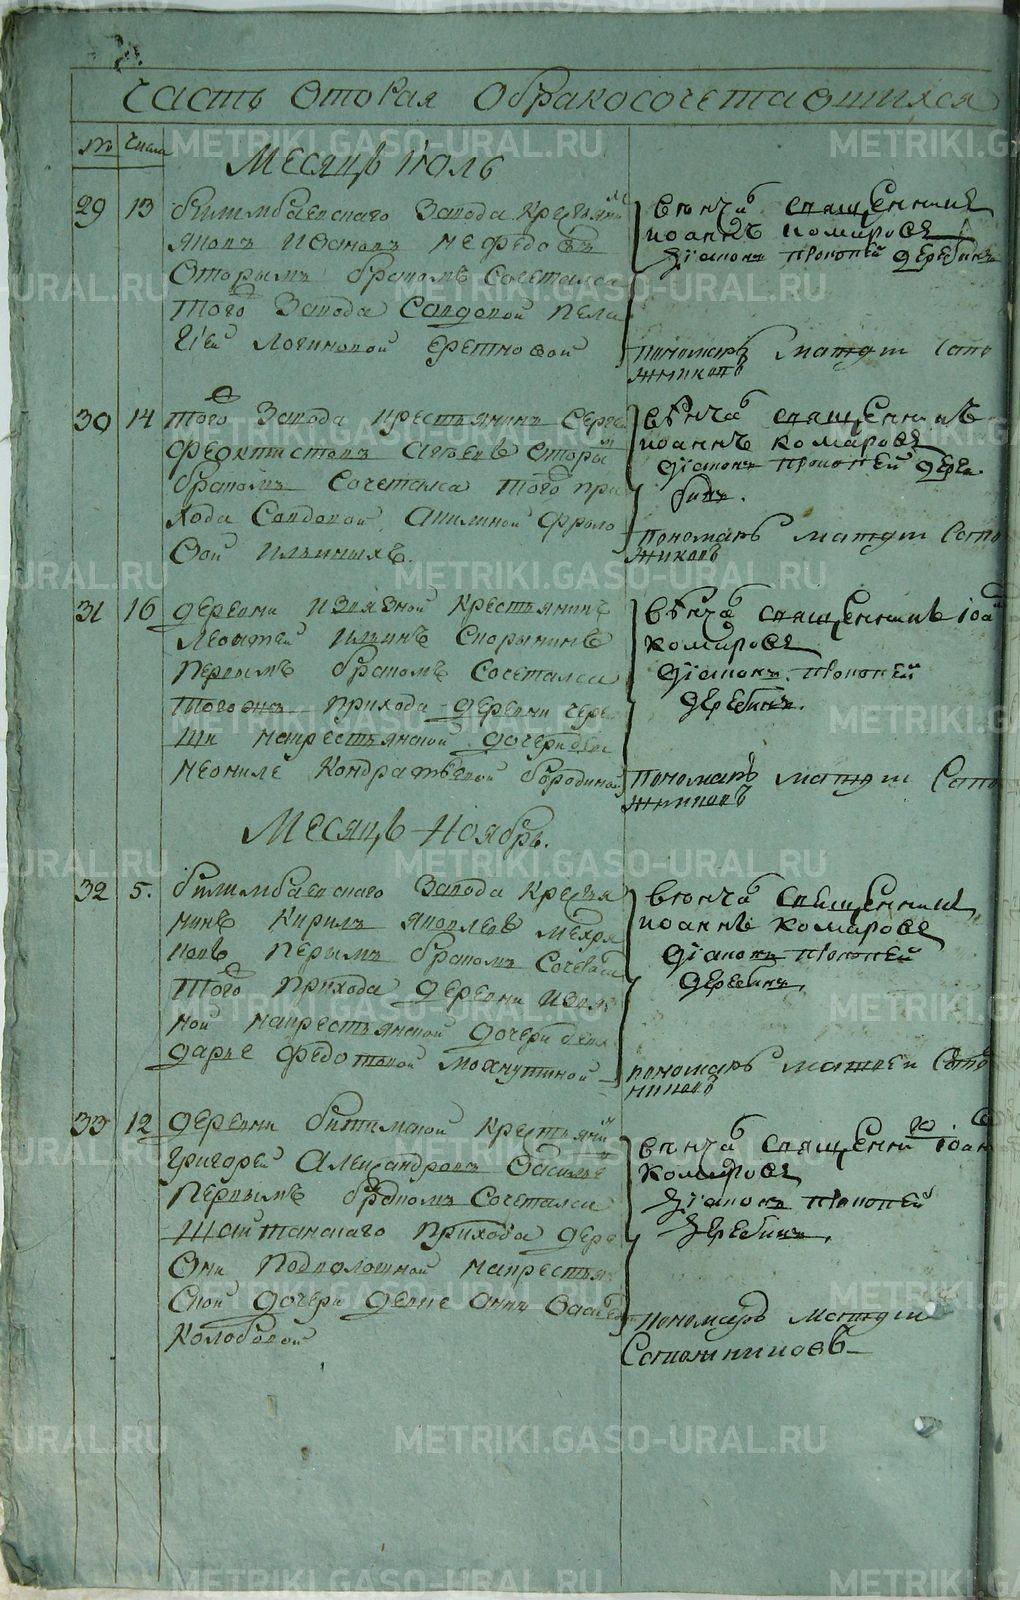 Часть вторая о бракосочетавшихся
№ Числа
Месяцъ июль
29 13 билимбаевскаго Завода крестьяни
яковъ ивановъ нефедовъ
вторымъ бракомъ сочетался
того Завода вдовой пела
гией логиновой
венчал священникъ
иоаннъ комаровъ
дiаконъ прокопей деребинъ
пономарь матфей Сапо
жниковъ
30 14 того Завода крестьянинъ Серге
феоктистовъ вторы
бракомъ сочетался того при
хода вдовой акилиной фроло
вой ильиныхъ.
вѣнчал священникъ
иоаннъ комаровъ
дiаконъ прокопей дере
бинъ.
пономарь матфей Сапо
жниковъ
31 16 деревни крестьянинъ
леонтей ильинъ спорынинъ
первымъ бракомъ сочетался
тогожъ прихода деревни чере
ши накрестьянской дочери девке
неониле кондратьевой бородиной
вѣнчал священникъ iоан
комаровъ
дiаконъ. прокопей
деребинъ.
пономарь матфей Сапо
жниковъ
Месяцъ Ноябрь.
32 5. билимбаевскаго Завода крестья
нинъ кирилъ яковлевъ мехря
ковъ первымъ бракомъ сочетался
того прихода деревни
ной накрестьянской дочери девке
дарье федотовой махнутиной
венчал священникъ
иоаннъ комаровъ
дiаконъ прокопей
деребинъ,
пономарь матвей Сапо
никовъ
33 12 деревни битимской крестьяни
григорей александровъ васильев
первымъ бракомъ сочетался
шайтанскаго прихода дере
вни подволошной накрестья
ской дочери девке анне
колобовой
венчал священник iоан
комаровъ
дiаконъ прокопей
деребинъ.
пономарь матфей
Сапожниковъ
METRIKI.GASO-URAL.RU